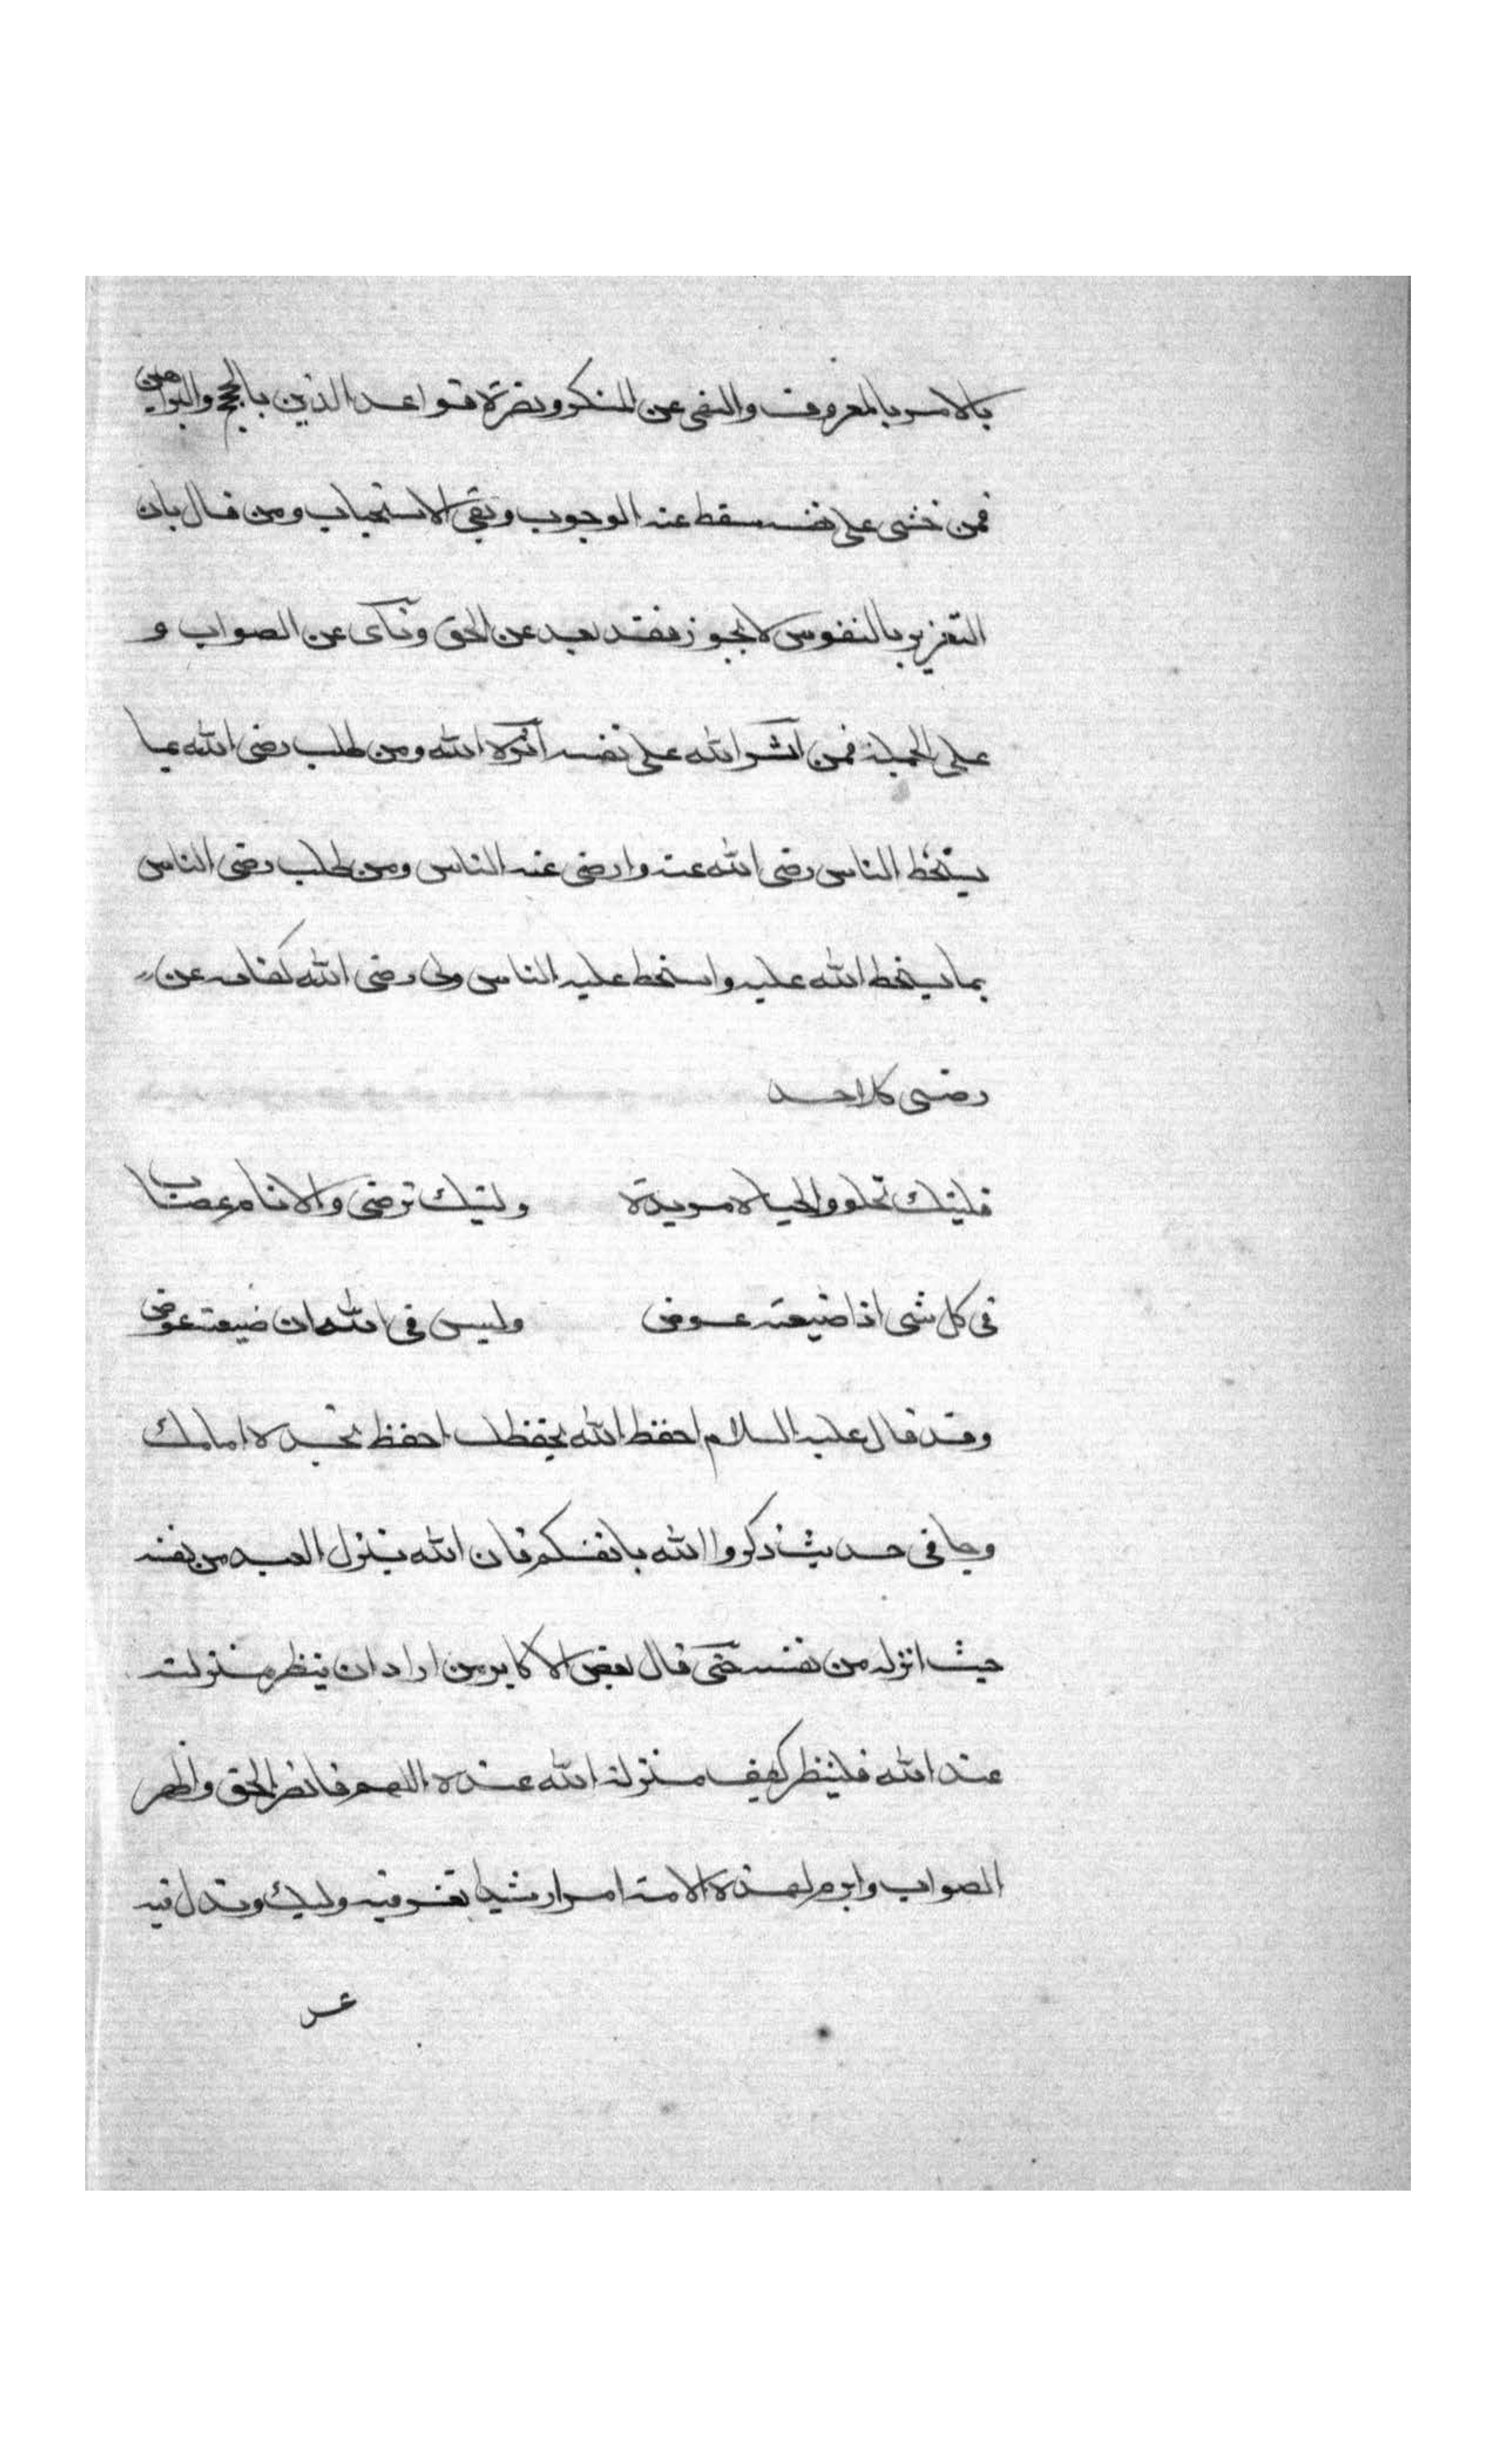 بالامر بالمعروف والنهى عن المنكر ونصرة قواعد الدين بالحجج والبراهين
فمن خشى على نفسه سقط عنه الوجوب وبقى الاستحباب ومن قال بان
التغرير بالنفوس لا يجوز فقد بعد عن الحق ونآى عن الصواب و
على الجملة فمن آثر الله على نفسه آثره الله ومن طلب رضى الله بما
يسخط الناس رضى الله عنه وارضى عنه الناس ومن طلب رضى الناس
بما يسخط الله عليه واسخط عليه الناس وفى رضى الله كفاية عن
رضى كل احد
فليتك تحلو والحياة مريرة وليتك ترضى والانام غضاب
فى كل شى اذا ضيعته عوض وليس فى الله ان ضيعت عوض
وقد قال عليه السلام احفظ الله يحفظك احفظ تجده امامك
وجا فى حديث ذكروا الله بانفسكم فان الله ينزل العبد من نفسه
حيث انزله من نفسه حتى قال بعض الاكابر من اراد ان ينظر منزلته
عند الله فلينظر كيف منزلة الله عنده اللهم فانصر الحق واظهر
الصواب وابرم لهذه الامة امرا رشيدا تعز فيه وليك وتذل فيه